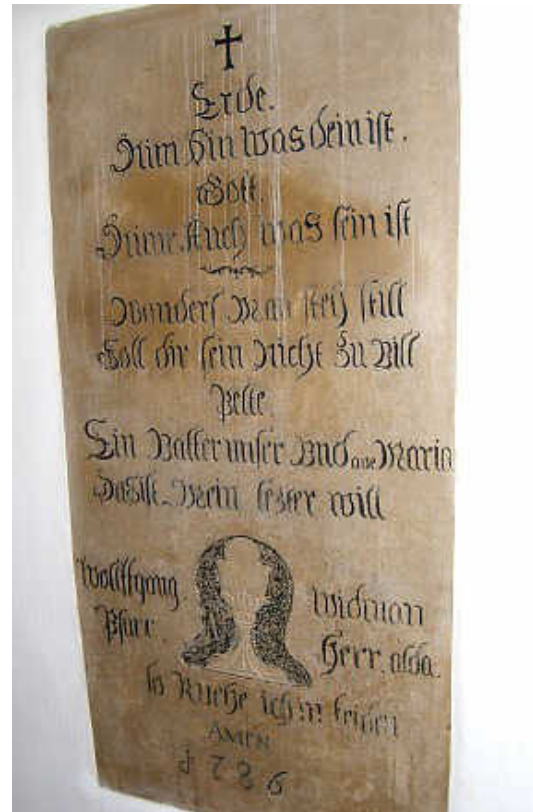 Erde.
Nim hin was dein ist.
Gott.
Nime Auch was sein ist
Wanders Man steh still
Soll dir sein nicht zu vill
Bette
Ein Vatter unser Und ave Maria
Das ist Mein lezter will
Wolffgang Widman
Pfarr Herr alda.
so Ruehe ich in friden
AMEN
1786